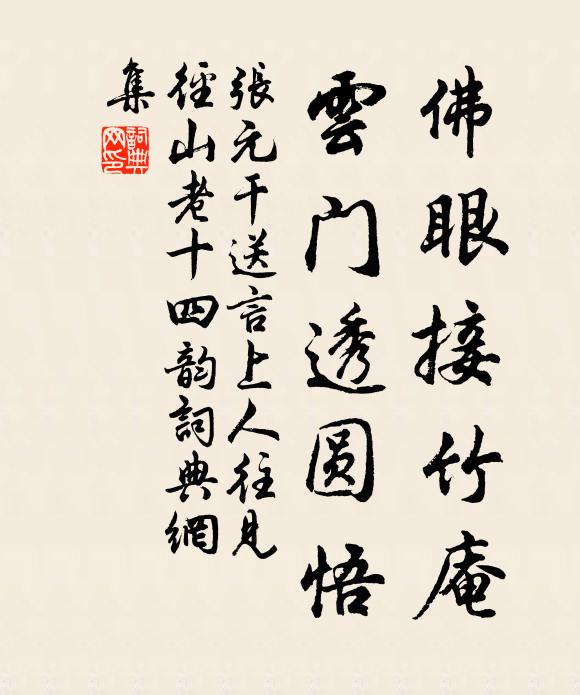 佛眼接竹庵
雲門透圆悟
張元干送言上人往見
徑山老十四韵詞典網
集
詞典網印